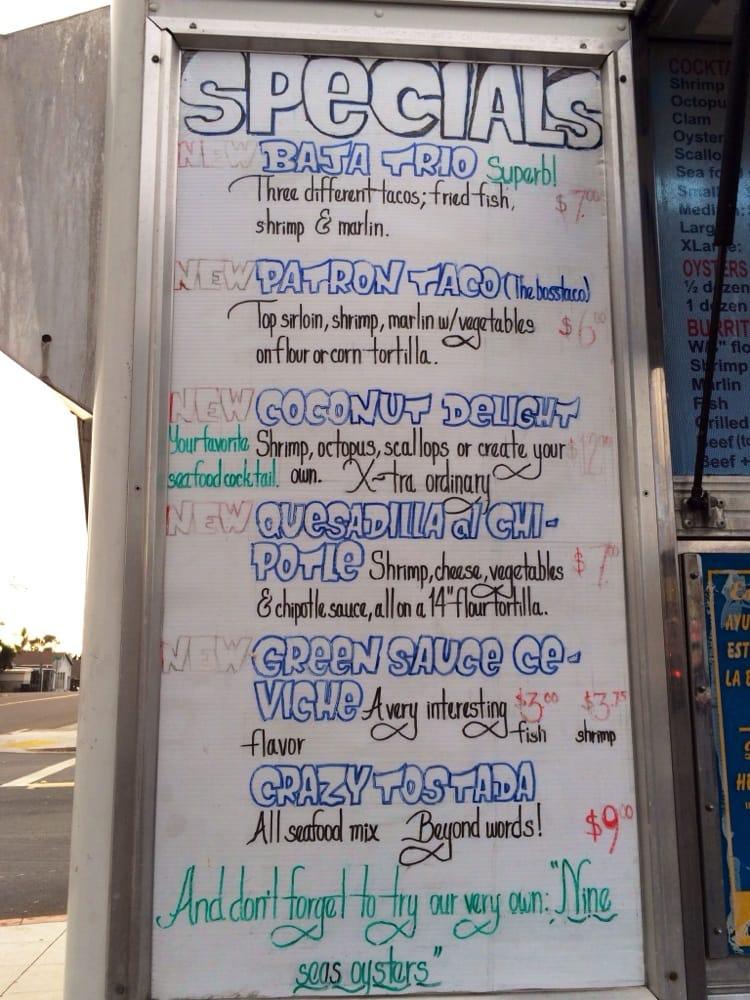 SPECIALS
NEW BAJA TRIO Superb!
Three different tacos; fried fish, $7.00
shrimp & marlin.
NEW PATRON TACO (The boss taco)
Top sirloin, shrimp, marlin w/vegetables $6.00
on flour or corn tortilla.
NEW COCONUT DELIGHT
Your favorite Shrimp, octopus, scallops or create your $12.00
seafood cocktail. own. X-tra ordinary
NEW QUESADILLA al CHI-
POTLE Shrimp, cheese, vegetables $7.00
& chipotle sauce, all on a 14" flour tortilla.
NEW GREEN SAUCE CE-
VICHE A very interesting $3.00 $3.75
flavor fish shrimp
CRAZY TOSTADA
All seafood mix Beyond words! $9.00
And don't forget to try our very own: "Nine
seas oysters"
COCKTA
Shrimp
Octopu
Clam
Oyster
Scallo
Sea fo
Small
Medi
Larg
XLarge:
OYSTERS
½ dozen
1 dozen
BURRIT
W/8" flo
Shrimp
Marlin
Fish
Grilled
Beef (to
Beef +
AYU
EST
LA